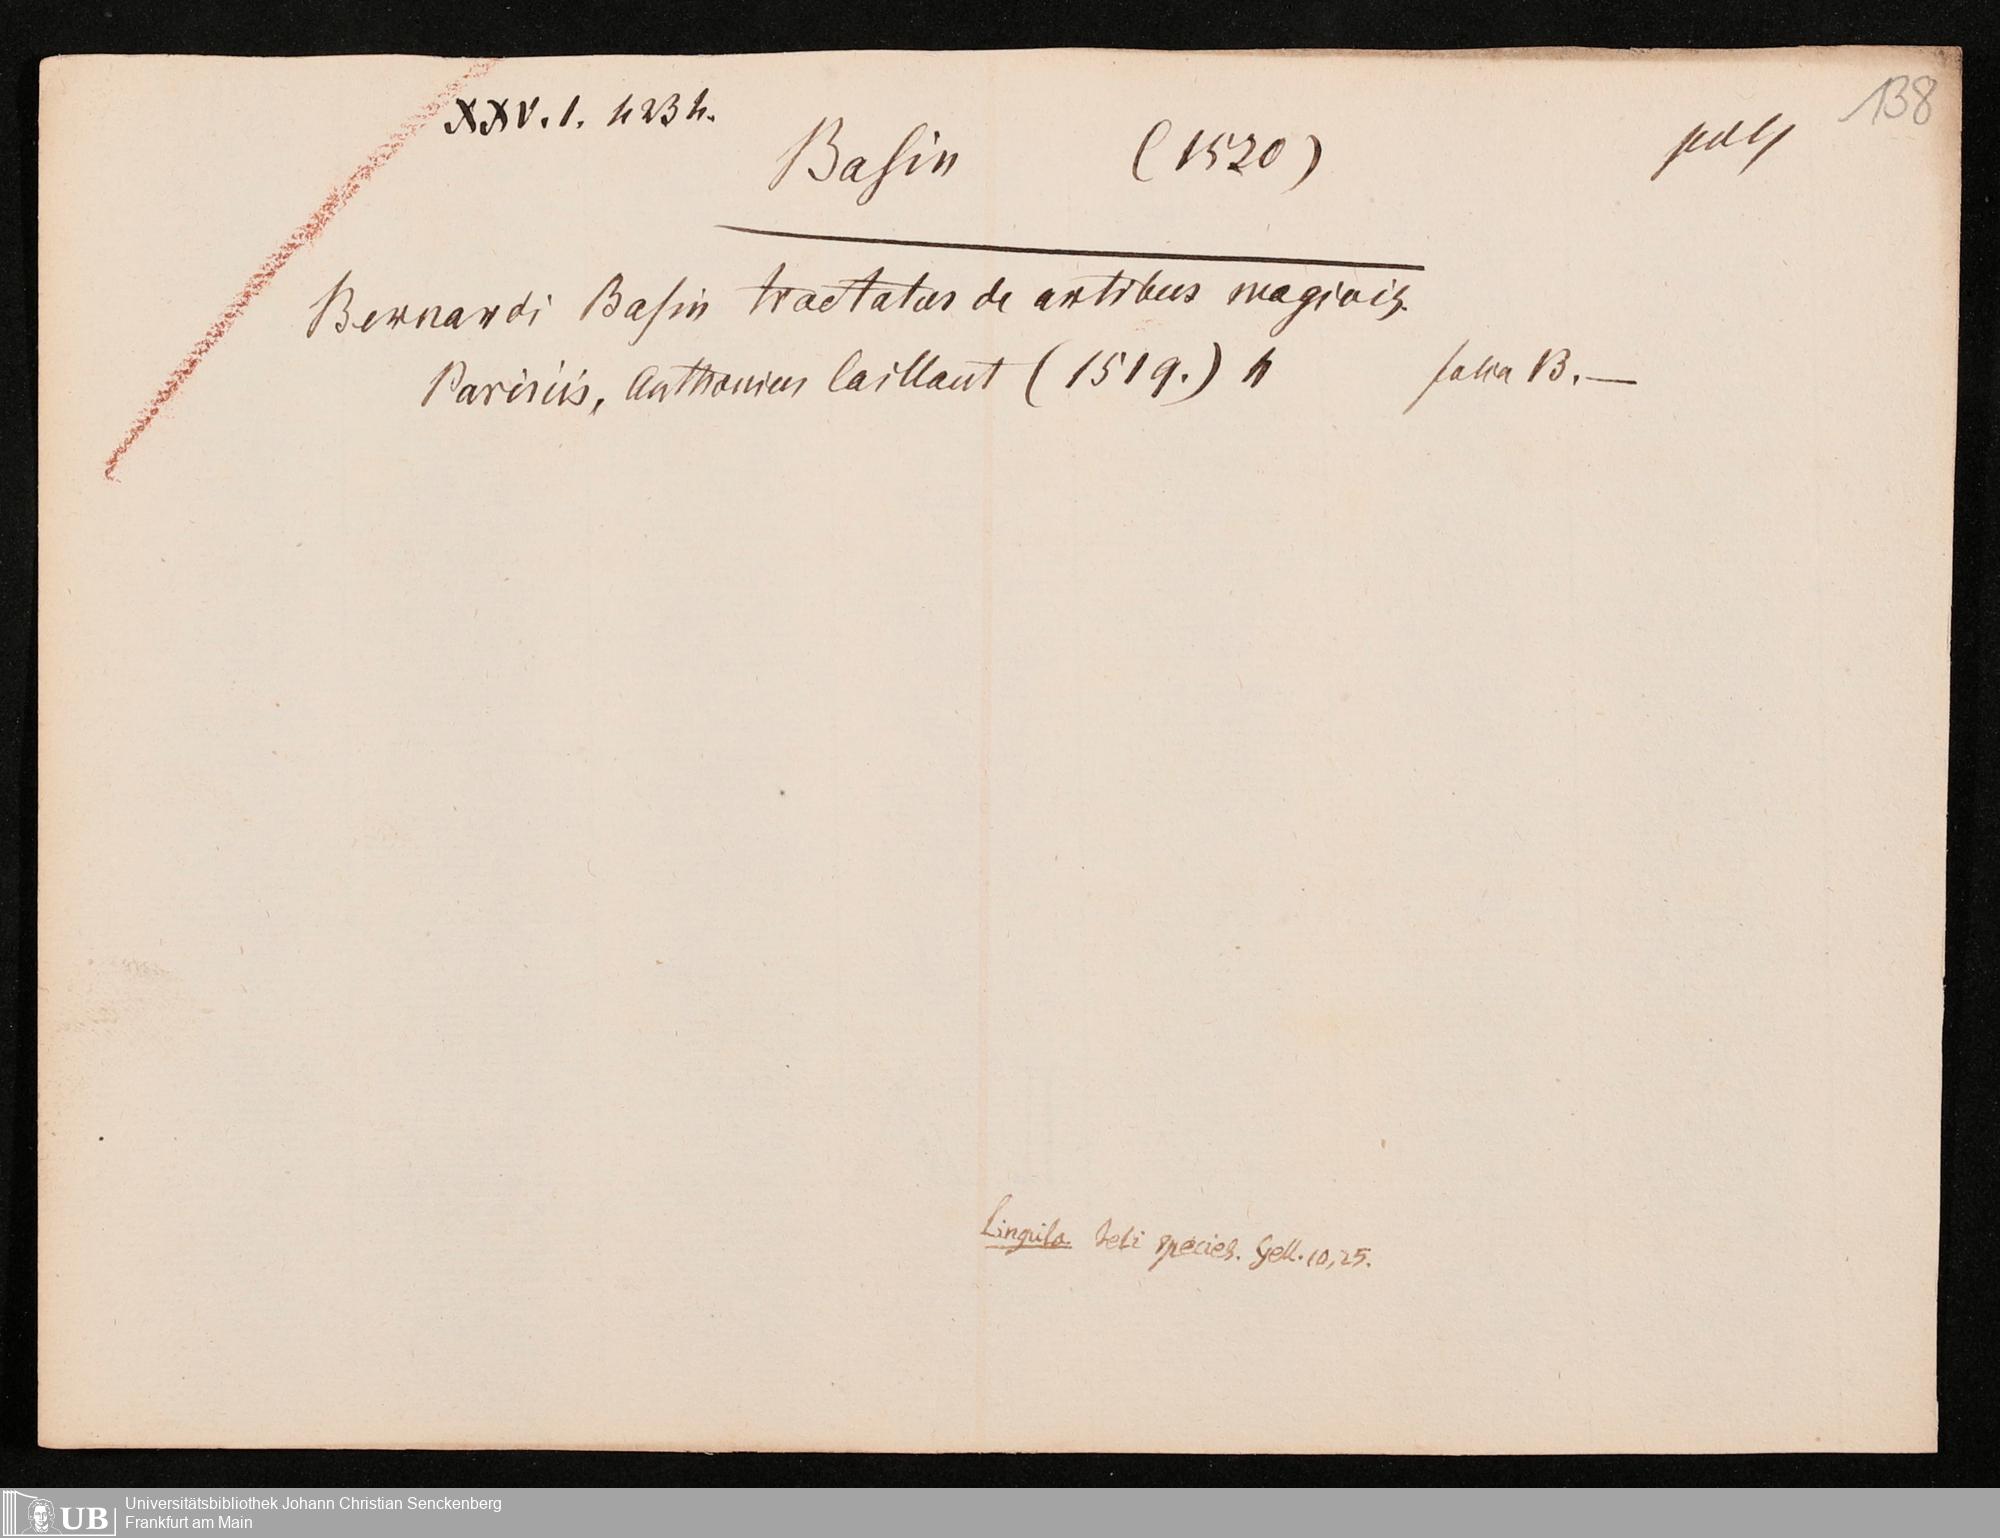 138
XXV. 1. 4234.
Basin (1520)
Bernardi Basin tractatus de artibus magicis.
Parisiis, Anthonius Caillaut (1519.) 4 folia B. —
Lingula teli species. Gell. 10, 25.
UB Universitätsbibliothek Johann Christian Senckenberg
Frankfurt am Main